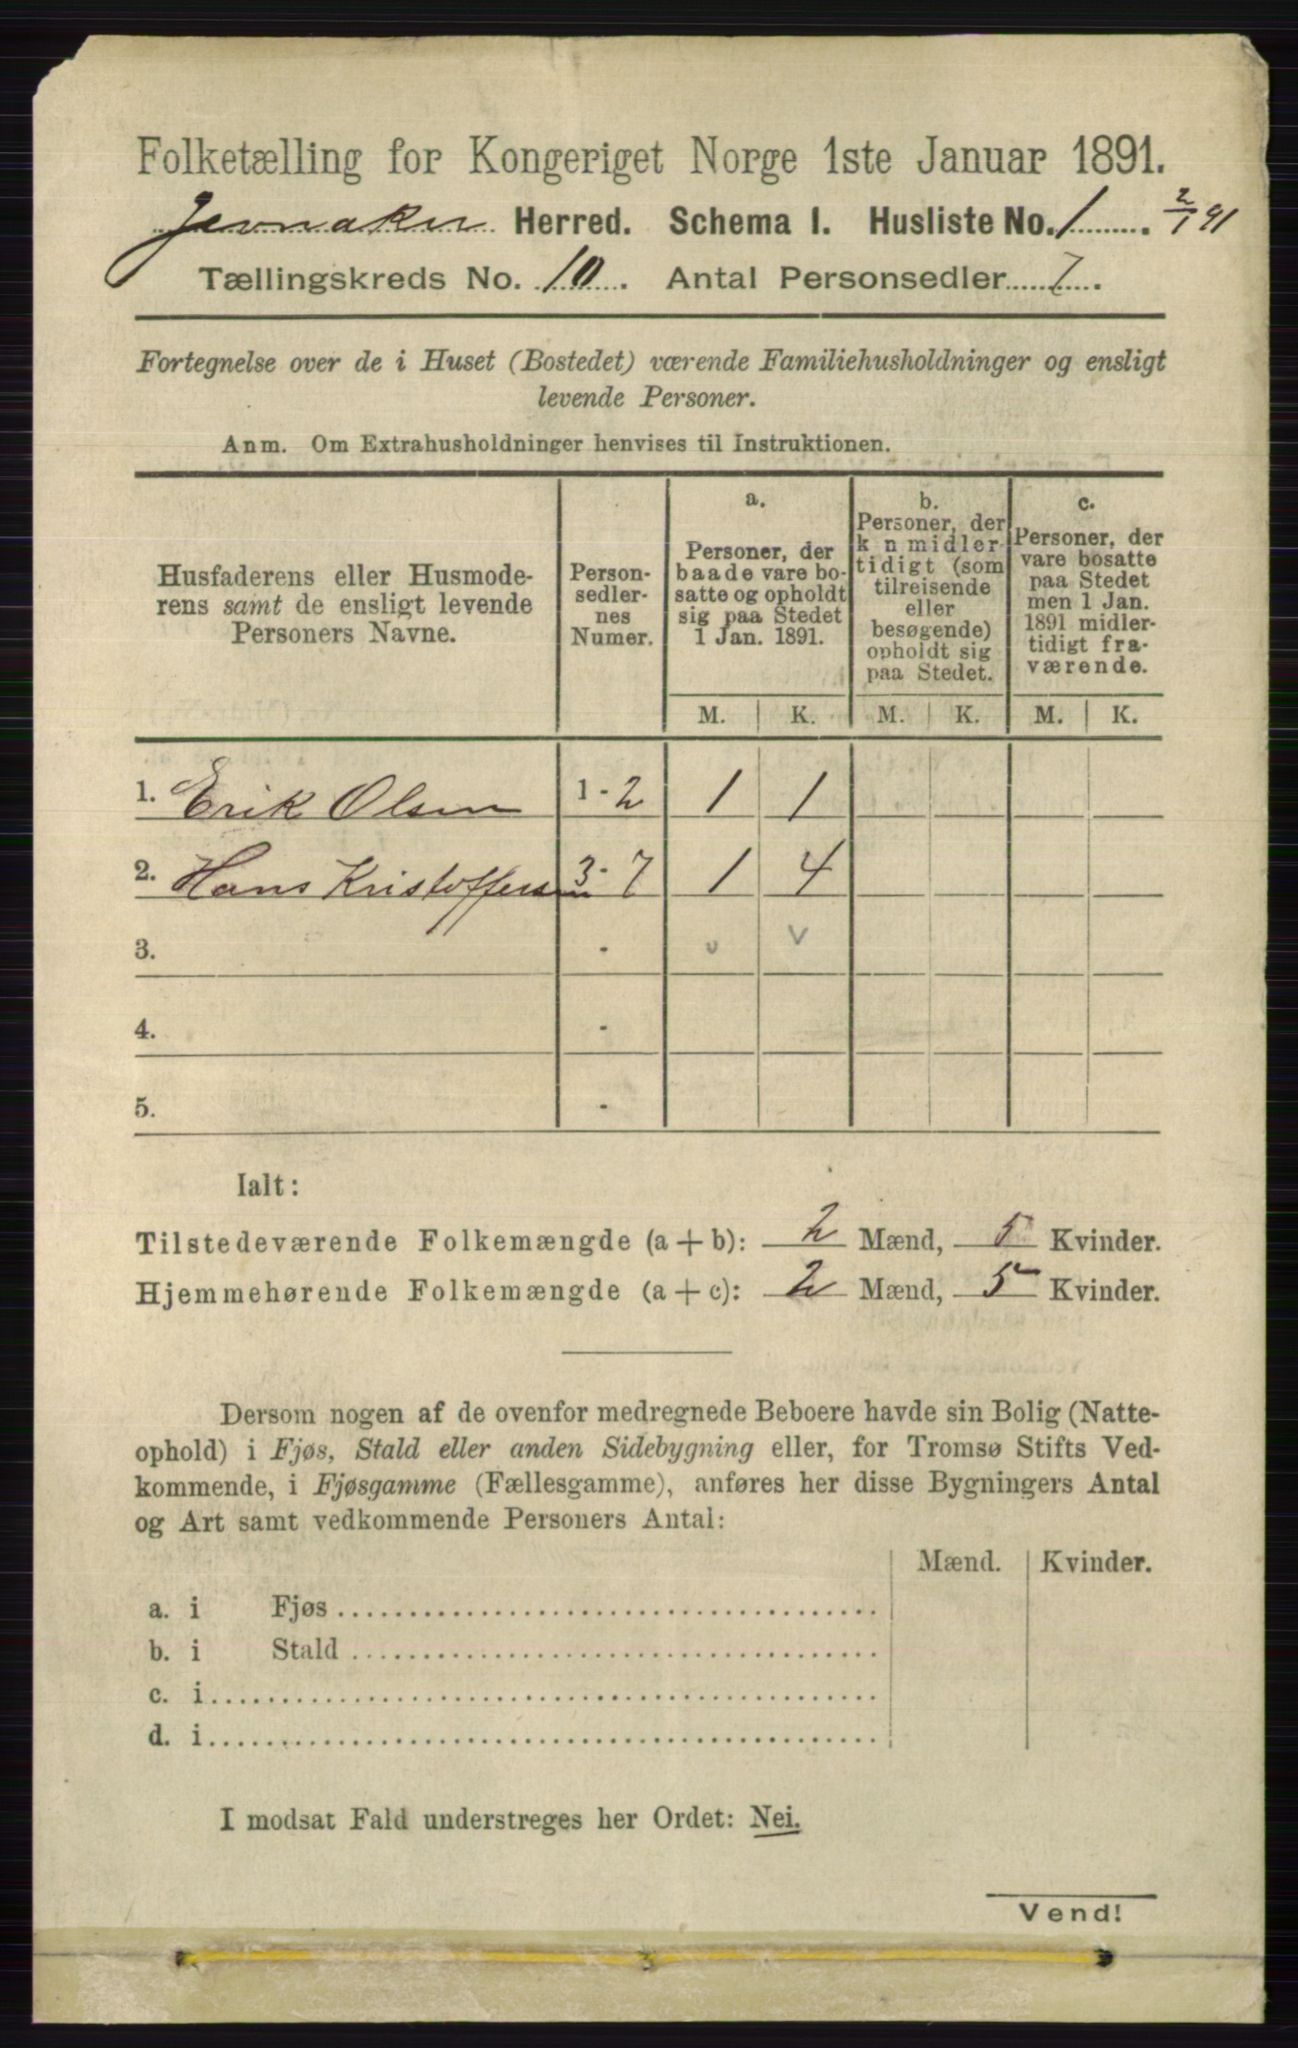 Folketælling for Kongeriget Norge 1ste Januar 1891.
Jevnaker Herred. Schema I. Husliste No. 1. 2/1 91
Tællingskreds No. 10. Antal Personsedler 7.
Fortegnelse over de i Huset (Bostedet) værende Familiehusholdninger og ensligt
levende Personer.
Anm. Om Extrahusholdninger henvises til Instruktionen.
Husfaderens eller Husmode-
rens samt de ensligt levende
Personers Navne.
Person-
sedler-
nes
Numer.
a.
Personer, der
baade vare bo-
satte og opholdt
sig paa Stedet
1 Jan. 1891.
b.
Personer, der
k n midler-
tidigt (som
tilreisende
eller
besøgende)
opholdt sig
paa Stedet.
c.
Personer, der
vare bosatte
paa Stedet
men 1 Jan.
1891 midler-
tidigt fra-
værende.
M. K. M. K. M. K.
1. Erik Olsen 1 - 2 1 1
2. Hans Kristoffersen 3 - 7 1 4
3. - v v
4. -
5. -
Ialt:
Tilstedeværende Folkemængde (a + b): 2 Mænd, 5 Kvinder.
Hjemmehørende Folkemængde (a + c): 2 Mænd, 5 Kvinder.
Dersom nogen af de ovenfor medregnede Beboere havde sin Bolig (Natte-
ophold) i Fjøs, Stald eller anden Sidebygning eller, for Tromsø Stifts Ved-
kommende, i Fjøsgamme (Fællesgamme), anføres her disse Bygningers Antal
og Art samt vedkommende Personers Antal:
Mænd. Kvinder.
a. i Fjøs
b. i Stald
c. i
d. i
I modsat Fald understreges her Ordet: Nei.
Vend!